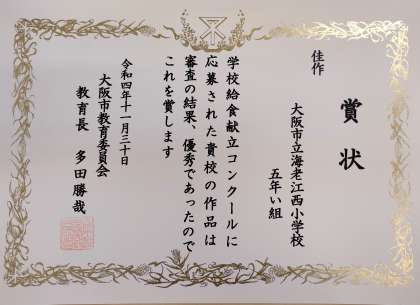 賞状
佳作
大阪市立海老江西小学校
五年い組
学校給食献立コンクールに
応募された貴校の作品は
審査の結果、優秀であったので
これを賞します
令和四年十一月三十日
大阪市教育委員会
教育長 多田勝哉